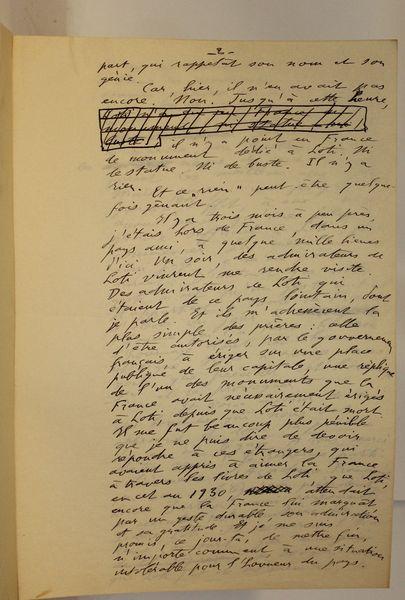 - 2 -
part, qui rappelât son nom et son
génie.
Car, hier, il n'en avait pas
encore. Non. Jusqu'à cette heure,
il n'y a point en France
de monument dédié à Loti. Ni
de statue. Ni de buste. Il n'y a
rien. Et ce "rien" peut être quelque-
fois gênant.
Il y a trois mois à peu près,
j'étais hors de France, dans un
pays ami, à quelque mille lieues
d'ici. Un soir, des admirateurs de
Loti vinrent me rendre visite.
Des admirateurs de Loti qui
étaient de ce pays lointain, dont
je parle. Et ils m'adressèrent la
plus simple des prières : celle
d'être autorisés, par le gouvernement
français à ériger sur une place
publique de leur capitale, une réplique
de l'un des monuments que la
France avait nécessairement érigés
à Loti, depuis que Loti était mort.
Il me fut beaucoup plus pénible
que je ne puis dire de devoir
répondre à ces étrangers, qui
avaient appris à aimer la France
à travers les livres de Loti, que Loti,
en cet an 1930, attendait
encore que la France lui marquât
par un geste durable son admiration
et sa gratitude. Et je me suis
promis, ce jour-là, de mettre fin,
n'importe comment, à une situation
intolérable pour l'honneur du pays.